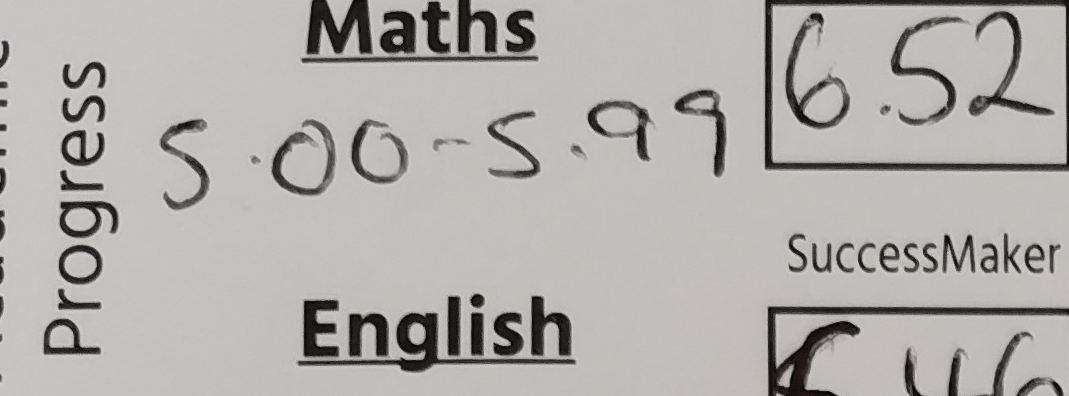 Progress
Maths
5.00-5.99
6.52
SuccessMaker
English